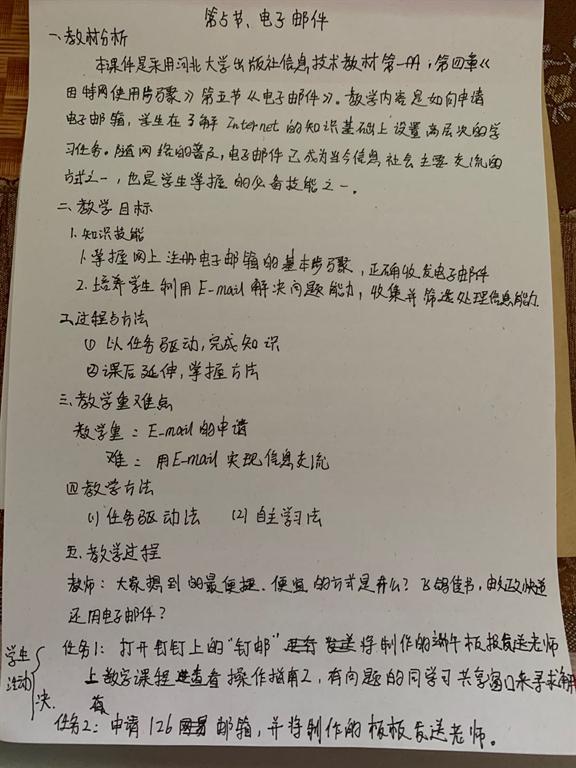 第5节、电子邮件
一、教材分析
本课件是采用河北大学出版社信息技术教材第一册,第四章《
因特网使用步骤》第五节《电子邮件》。教学内容是如何申请
电子邮箱,学生在了解Internet的知识基础上设置高层次的学
习任务。随网络的普及,电子邮件已成为当今信息社会主要交流的
方式之一,也是学生掌握的必备技能之一。
二、教学目标
1.知识技能
1.掌握网上注册电子邮箱的基本步骤,正确收发电子邮件
2.培养学生利用E-mail解决问题能力,收集并筛选处理信息能力.
二过程与方法
① 以任务驱动,完成知识
② 课后延伸,掌握方法
三、教学重难点
教学重:E-mail的申请
难:用E-mail实现信息交流
四教学方法
(1) 任务驱动法 (2) 自主学习法
五、教学过程
教师:大家想到的最便捷、便宜的方式是什么?飞鸽传书,邮政快递
还用电子邮件?
学生
活动
任务1:打开钉钉上的“钉邮”将制作的端午板报发送老师
上教学课程查看操作指南2,有问题的同学习共享窗口来寻求解
决.
任务2:申请126邮箱,并将制作的板板发送老师。